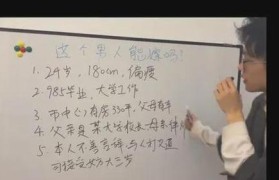 这个男人能嫁吗!
1. 29岁, 180cm, 偏瘦
2. 985毕业, 大学工作
3. 市中心有房330平, 父母有车
4. 父亲是某大学校长 母亲体
5. 本人不善言辞, 与人打交道
可接受女方大三岁